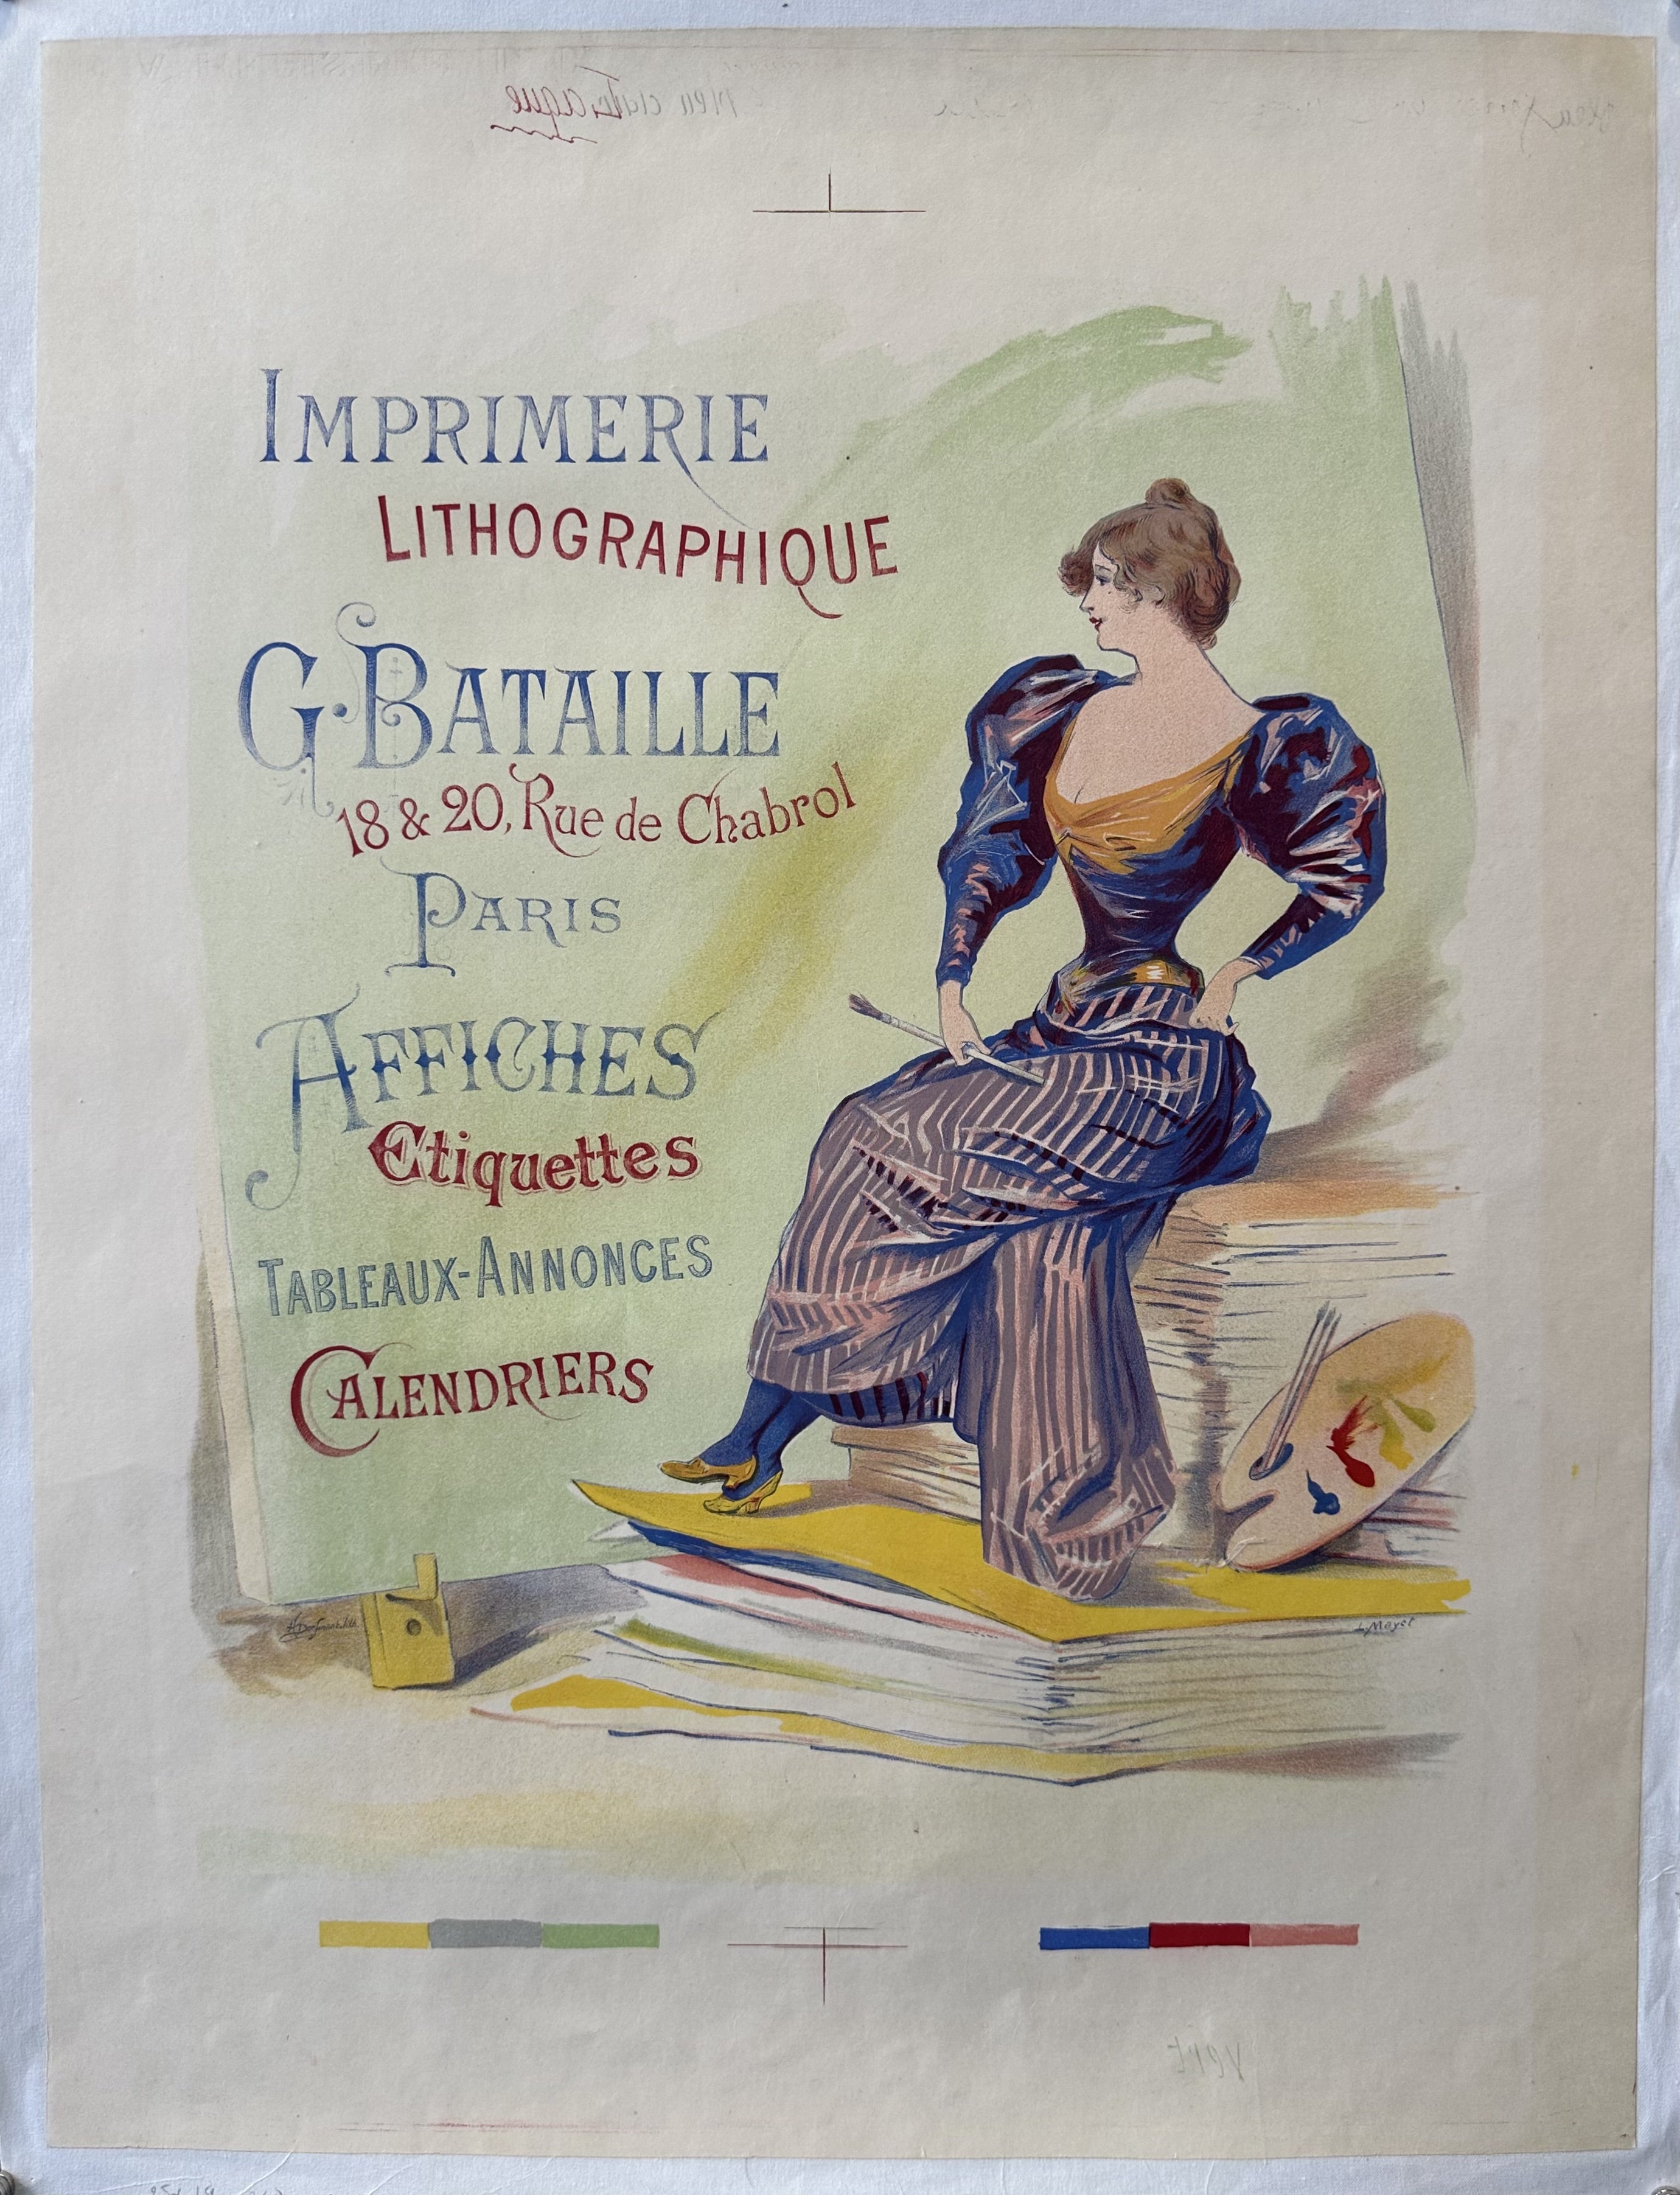 IMPRIMERIE
LITHOGRAPHIQUE
G. BATAILLE
18 & 20, Rue de Chabrol
PARIS
AFFICHES
Etiquettes
TABLEAUX-ANNONCES
CALENDRIERS
L. Mayet
vert